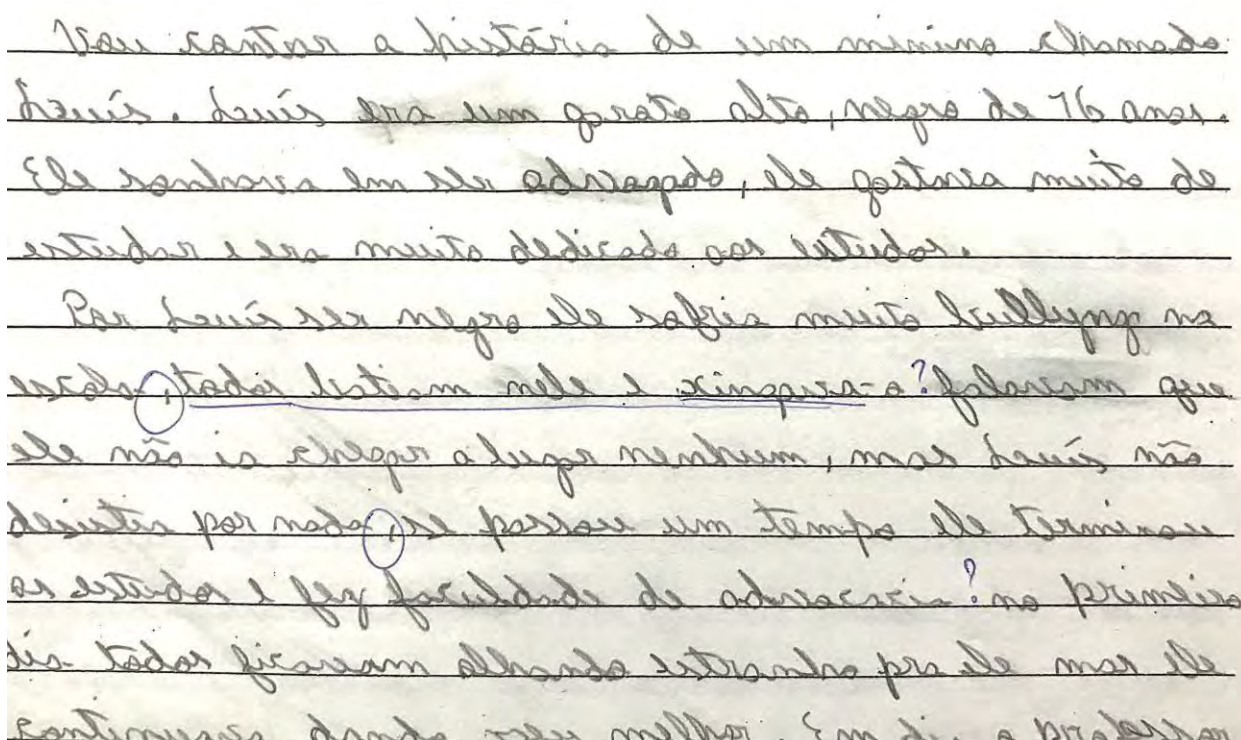 Vou contar a história de um menino chamado
Luis. Luis era um garoto alto, negro de 17 anos.
ele sonhava em ser advogado, ele gostava muito de
estudar e era muito dedicado aos estudos.
Por Luis ser negro ele sofria muito bullying na
escola, todos batiam nele e xingava-o? falavam que
ele não ia chegar a lugar nenhum, mas Luis não
desistia por nada, se passou um tempo ele terminou
os estudos e fez faculdade de advocacia? no
dia todos ficaram olhando estranho pra ele mas ele
dando seu melhor. dia a